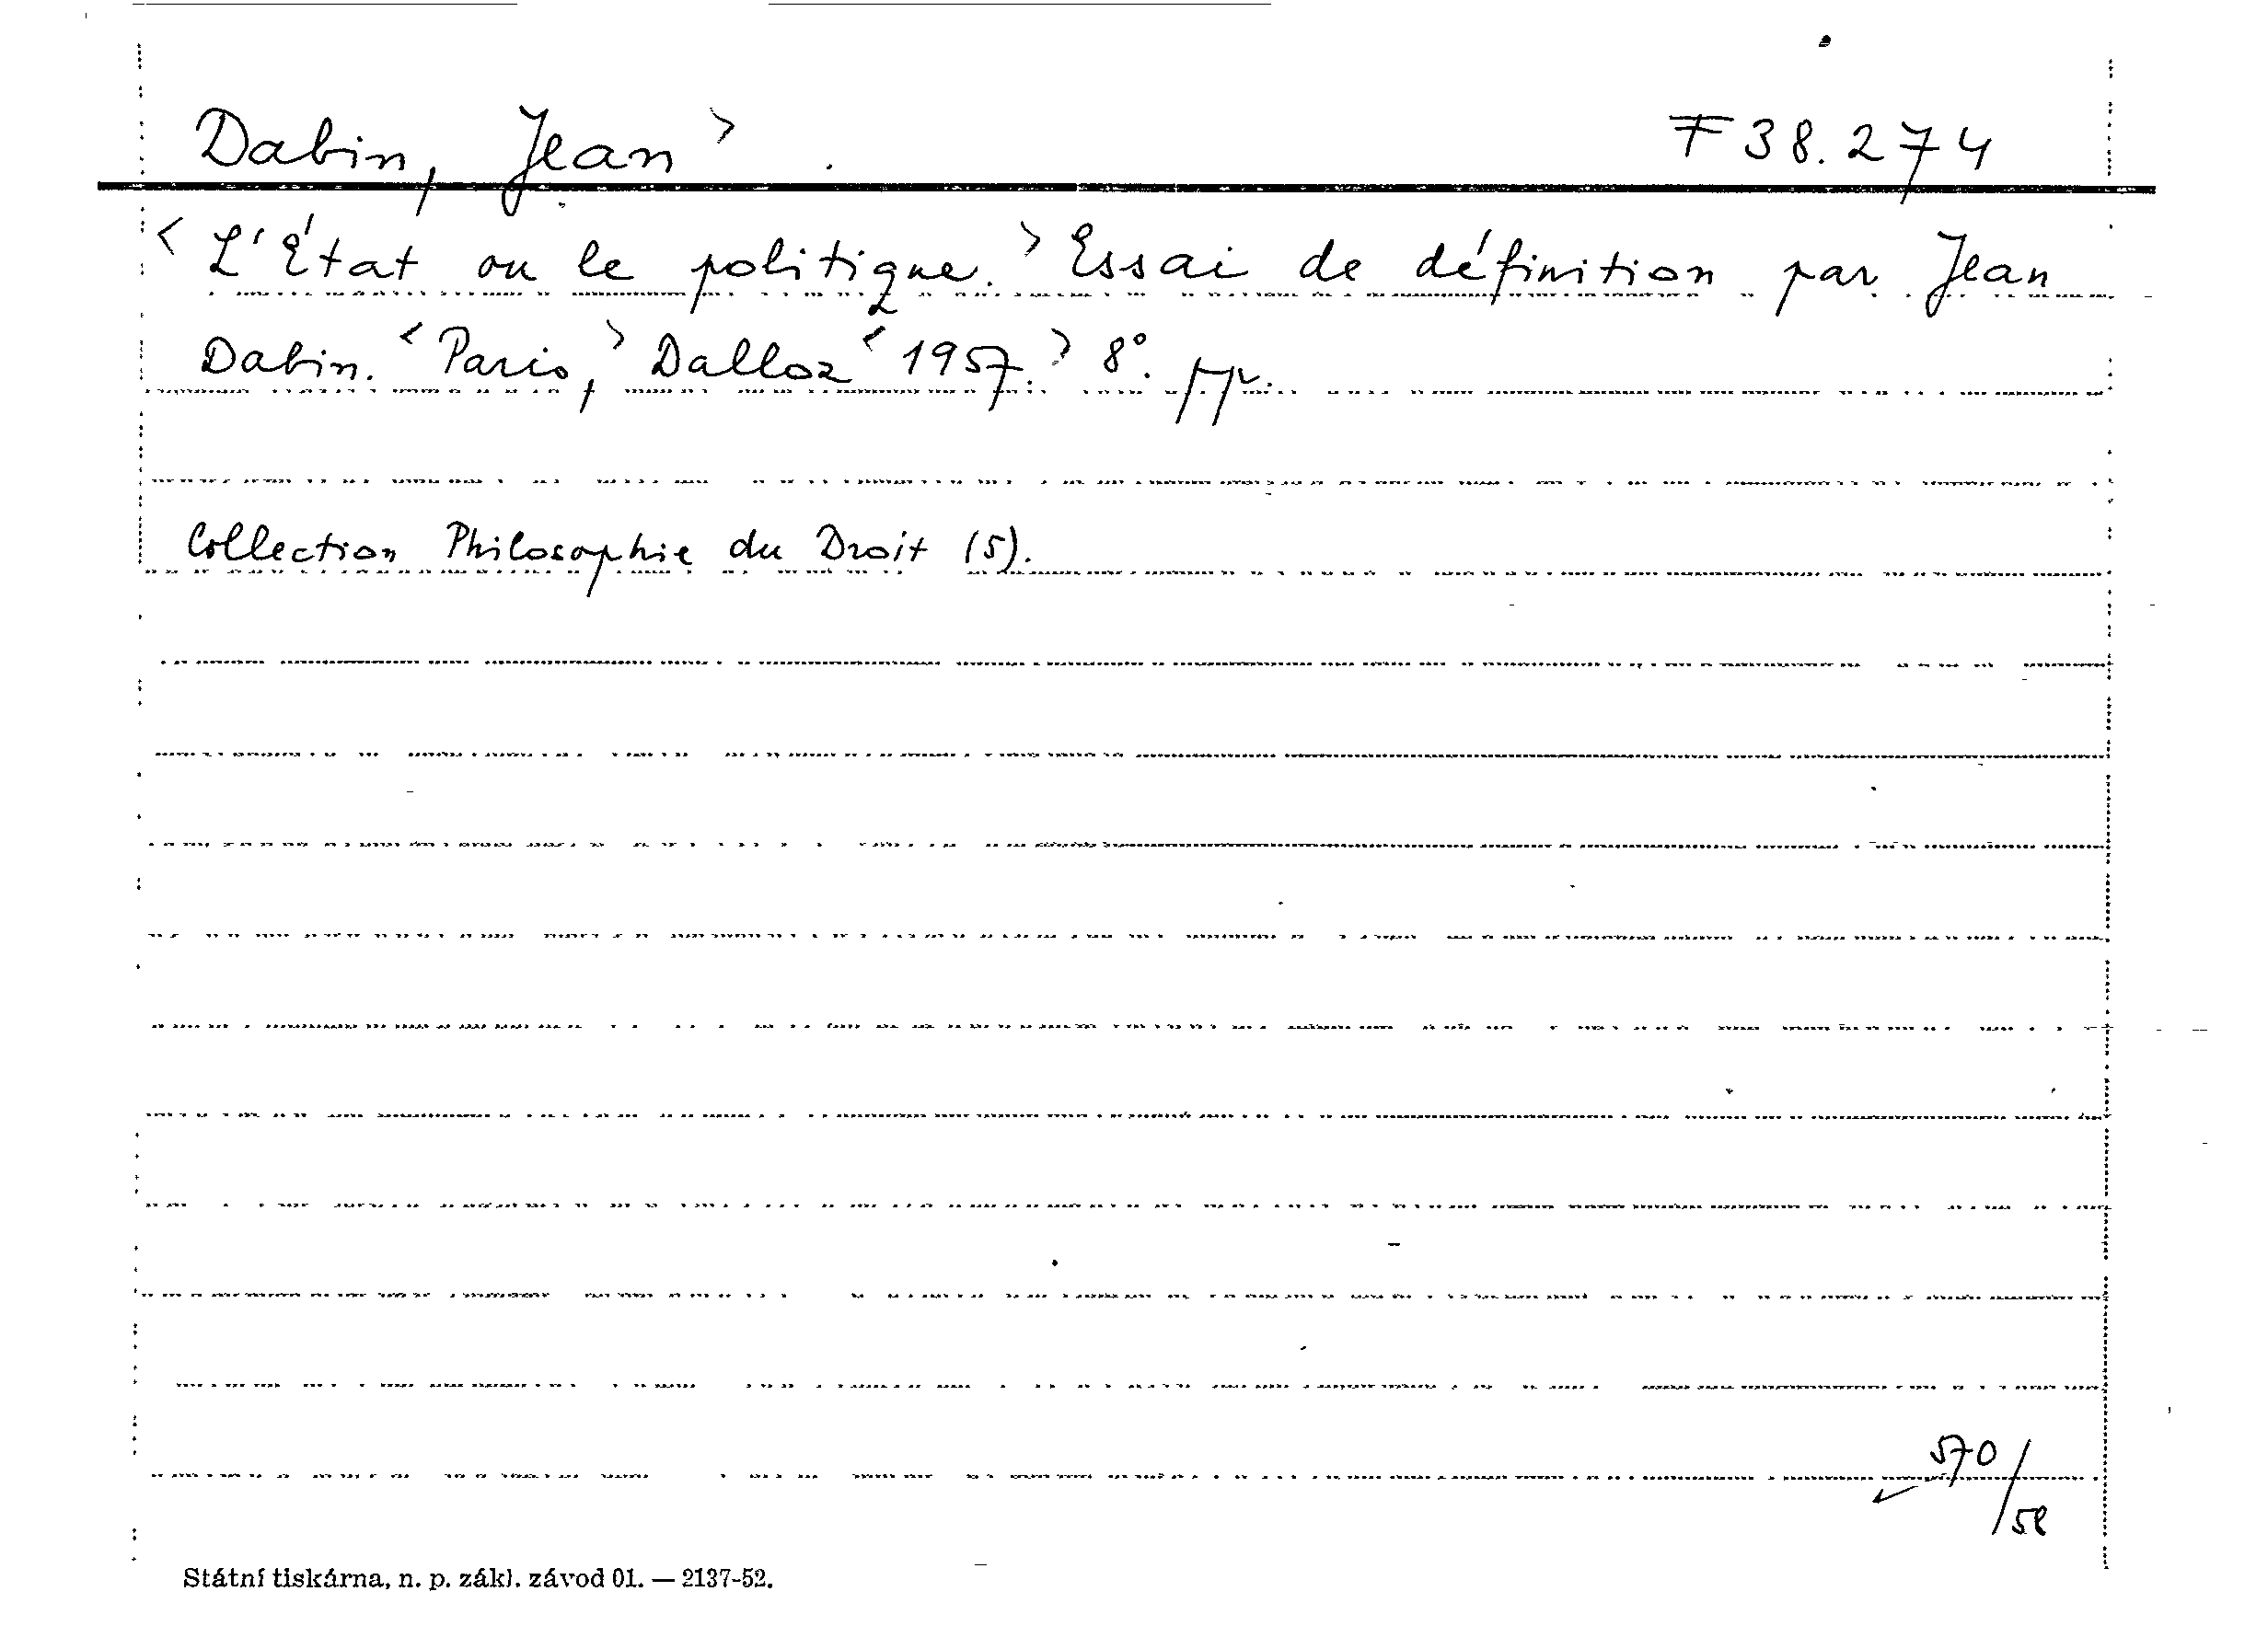 Dabin, Jean > F 38.274
< L'État ou le politique. > Essai de définition par Jean
Dabin. < Paris, > Dalloz < 1957. > 8°.
Collection Philosophie du Droit (5).
570/58
Státní tiskárna, n. p. zákl. závod 01. — 2137-52.